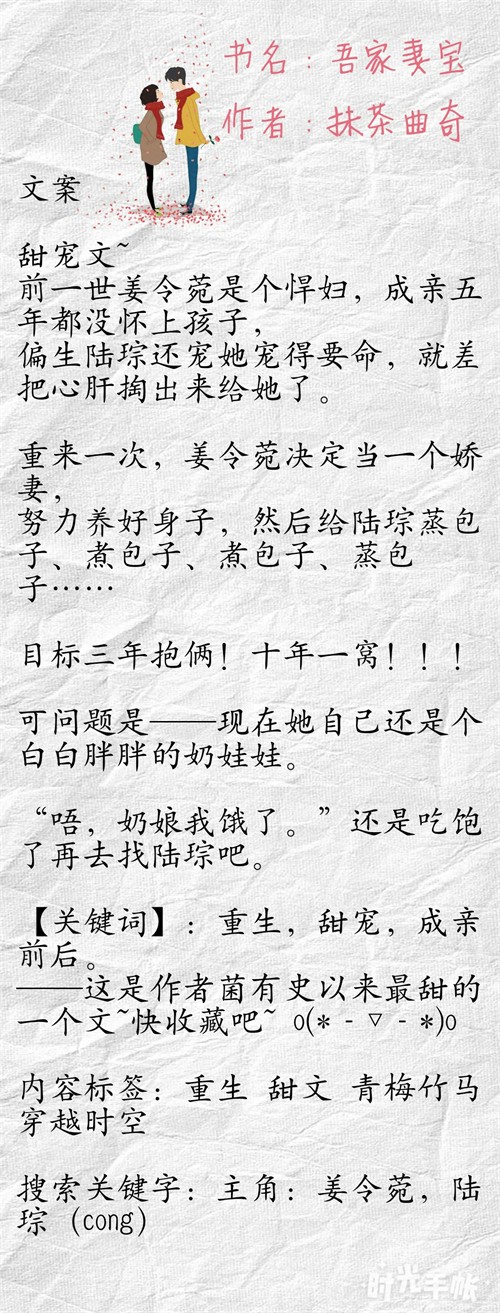 书名：吾家妻宝
作者：抹茶曲奇
文案
甜宠文~
前一世姜令菀是个悍妇，成亲五
年都没怀上孩子，
偏生陆琮还宠她宠得要命，就差
把心肝掏出来给她了。
重来一次，姜令菀决定当一个娇
妻，
努力养好身子，然后给陆琮蒸包
子、煮包子、煮包子、蒸包
子……
目标三年抱俩！十年一窝！！！
可问题是——现在她自己还是个
白白胖胖的奶娃娃。
“唔，奶娘我饿了。”还是吃饱
了再去找陆琮吧。
【关键词】：重生，甜宠，成亲
前后。
——这是作者菌有史以来最甜的
一个文~快收藏吧~ o(*-▽-*)o
内容标签：重生 甜文 青梅竹马
穿越时空
搜索关键字：主角：姜令菀，陆
琮（cong）
时光手帐